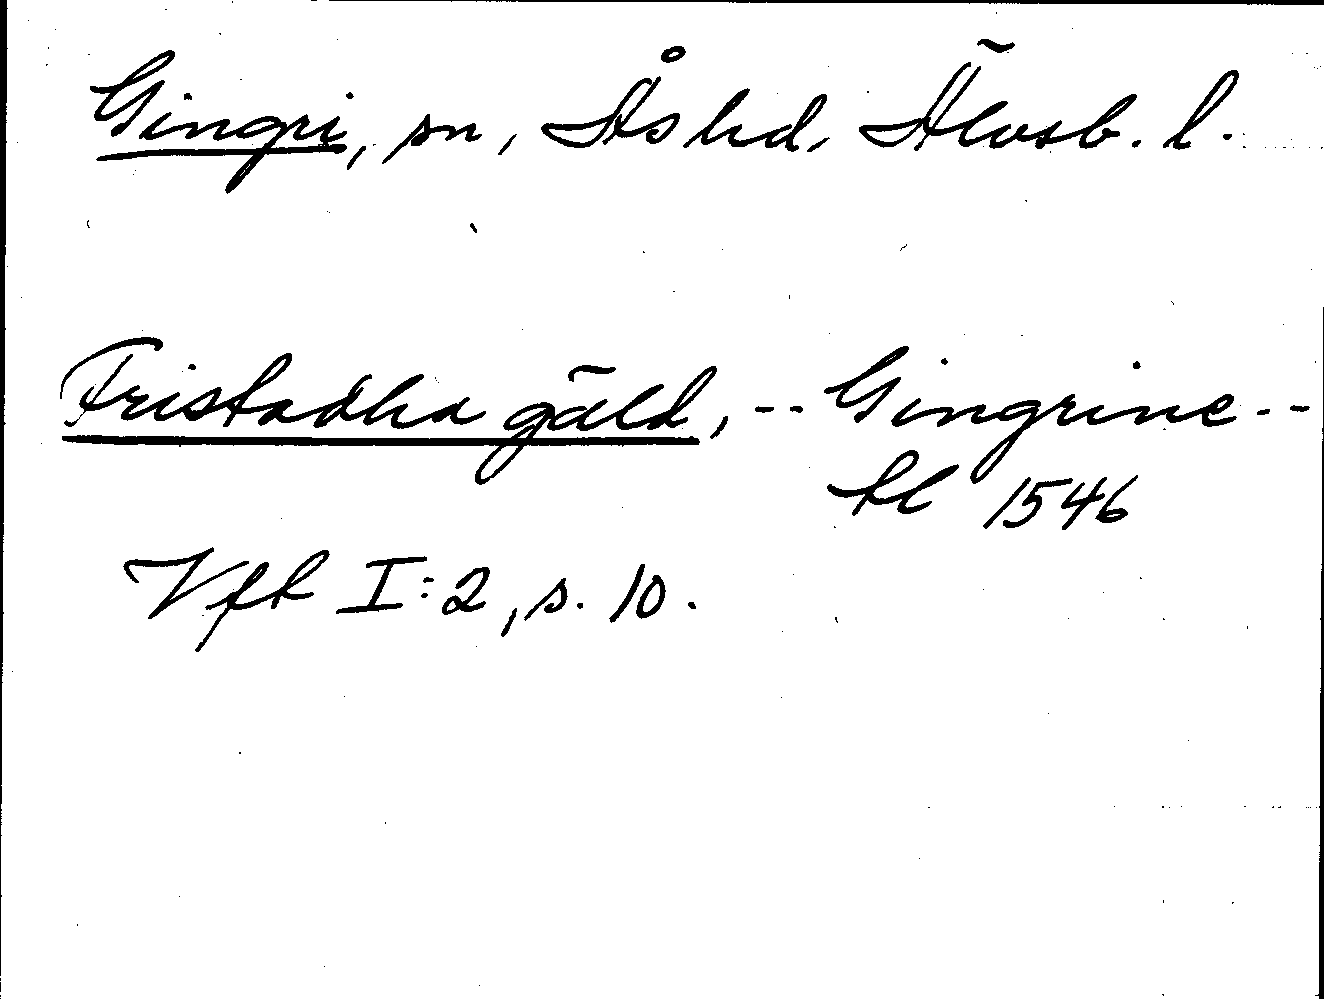 Gingri, sn, Ås hd, Älvsb. l.
Fristadha gäld, -- Gingrine --
kl 1546
Vfk I:2, s. 10.